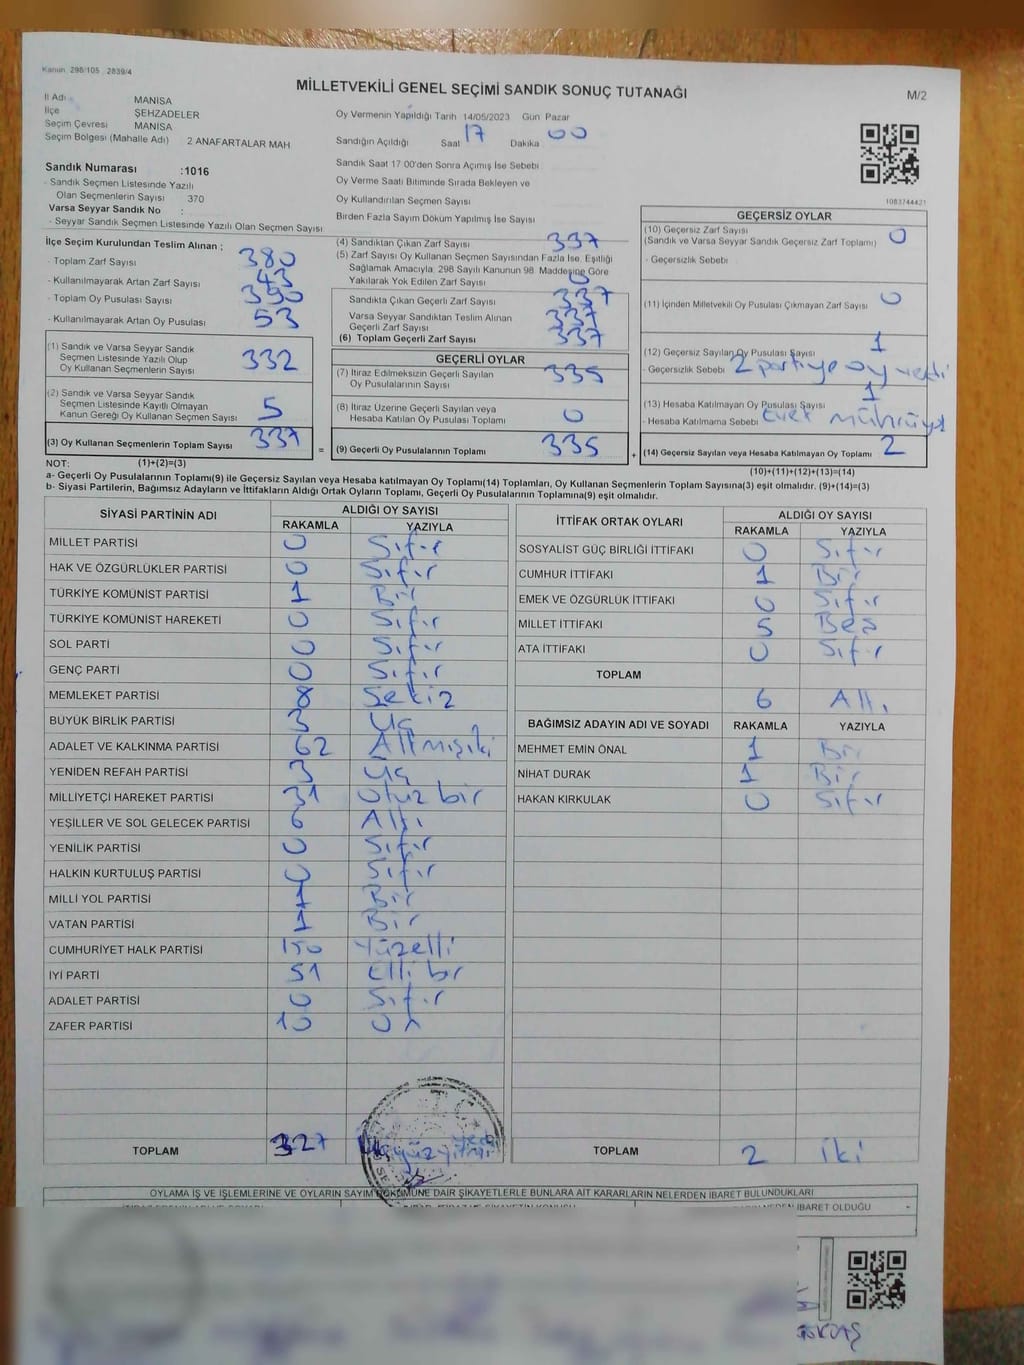 Kanun: 298/105 2839/4
MİLLETVEKİLİ GENEL SEÇİMİ SANDIK SONUÇ TUTANAĞI
M/2
İl Adı MANİSA
İlçe ŞEHZADELER
Seçim Çevresi MANİSA
Seçim Bölgesi (Mahalle Adı) 2 ANAFARTALAR MAH.
Oy Vermenin Yapıldığı Tarih 14/05/2023 Gün Pazar
Sandığın Açıldığı Saat 17 Dakika 00
Sandık Saat 17 00'den Sonra Açımış İse Sebebi
Oy Verme Saati Bitiminde Sırada Bekleyen ve
Oy Kullandırılan Seçmen Sayısı
Birden Fazla Sayım Döküm Yapılmış İse Sayısı
1083744421
Sandık Numarası :1016
- Sandık Seçmen Listesinde Yazılı
Olan Seçmenlerin Sayısı 370
Varsa Seyyar Sandık No :
- Seyyar Sandık Seçmen Listesinde Yazılı Olan Seçmen Sayısı
İlçe Seçim Kurulundan Teslim Alınan ;
- Toplam Zarf Sayısı 380
- Kullanılmayarak Artan Zarf Sayısı 43
- Toplam Oy Pusulası Sayısı 390
- Kullanılmayarak Artan Oy Pusulası 53
(1) Sandık ve Varsa Seyyar Sandık
Seçmen Listesinde Yazılı Olup
Oy Kullanan Seçmenlerin Sayısı 332
(2) Sandık ve Varsa Seyyar Sandık
Seçmen Listesinde Kayıtlı Olmayan
Kanun Gereği Oy Kullanan Seçmen Sayısı 5
(3) Oy Kullanan Seçmenlerin Toplam Sayısı 337
(4) Sandıktan Çıkan Zarf Sayısı 337
(5) Zarf Sayısı Oy Kullanan Seçmen Sayısından Fazla İse, Eşitliği
Sağlamak Amacıyla, 298 Sayılı Kanunun 98 Maddesine Göre
Yakılarak Yok Edilen Zarf Sayısı 0
Sandıkta Çıkan Geçerli Zarf Sayısı 337
Varsa Seyyar Sandıktan Teslim Alınan
Geçerli Zarf Sayısı 337
(6) Toplam Geçerli Zarf Sayısı 337
GEÇERLİ OYLAR
(7) İtiraz Edilmeksizin Geçerli Sayılan
Oy Pusulalarının Sayısı 335
(8) İtiraz Üzerine Geçerli Sayılan veya
Hesaba Katılan Oy Pusulası Toplamı 0
= (9) Geçerli Oy Pusulalarının Toplamı 335
GEÇERSİZ OYLAR
(10) Geçersiz Zarf Sayısı
(Sandık ve Varsa Seyyar Sandık Geçersiz Zarf Toplamı) 0
- Geçersizlik Sebebi
(11) İçinden Milletvekili Oy Pusulası Çıkmayan Zarf Sayısı 0
(12) Geçersiz Sayılan Oy Pusulası Sayısı 1
- Geçersizlik Sebebi 2 partiye oy verdi
(13) Hesaba Katılmayan Oy Pusulası Sayısı 1
- Hesaba Katılmama Sebebi Evet
+ (14) Geçersiz Sayılan veya Hesaba Katılmayan Oy Toplamı 2
NOT: (1)+(2)=(3) (10)+(11)+(12)+(13)=(14)
a- Geçerli Oy Pusulalarının Toplamı(9) ile Geçersiz Sayılan veya Hesaba katılmayan Oy Toplamı(14) Toplamları, Oy Kullanan Seçmenlerin Toplam Sayısına(3) eşit olmalıdır. (9)+(14)=(3)
b- Siyasi Partilerin, Bağımsız Adayların ve İttifakların Aldığı Ortak Oyların Toplamı, Geçerli Oy Pusulalarının Toplamına(9) eşit olmalıdır.
SİYASİ PARTİNİN ADI ALDIĞI OY SAYISI
RAKAMLA YAZIYLA
MİLLET PARTİSİ 0 Sıfır
HAK VE ÖZGÜRLÜKLER PARTİSİ 0 Sıfır
TÜRKİYE KOMÜNİST PARTİSİ 1 Bir
TÜRKİYE KOMÜNİST HAREKETİ 0 Sıfır
SOL PARTİ 0 Sıfır
GENÇ PARTİ 0 Sıfır
MEMLEKET PARTİSİ 8 Sekiz
BÜYÜK BİRLİK PARTİSİ 3 Üç
ADALET VE KALKINMA PARTİSİ 62 Altmışiki
YENİDEN REFAH PARTİSİ 3 Üç
MİLLİYETÇİ HAREKET PARTİSİ 31 Otuz bir
YEŞİLLER VE SOL GELECEK PARTİSİ 6 Altı
YENİLİK PARTİSİ 0 Sıfır
HALKIN KURTULUŞ PARTİSİ 0 Sıfır
MİLLİ YOL PARTİSİ 1 Bir
VATAN PARTİSİ 1 Bir
CUMHURİYET HALK PARTİSİ 150 Yüzelli
İYİ PARTİ 51 Elli bir
ADALET PARTİSİ 0 Sıfır
ZAFER PARTİSİ 10 On
TOPLAM 327 Üçyüzyirmi yedi
İTTİFAK ORTAK OYLARI ALDIĞI OY SAYISI
RAKAMLA YAZIYLA
SOSYALİST GÜÇ BİRLİĞİ İTTİFAKI 0 Sıfır
CUMHUR İTTİFAKI 1 Bir
EMEK VE ÖZGÜRLÜK İTTİFAKI 0 Sıfır
MİLLET İTTİFAKI 5 Beş
ATA İTTİFAKI 0 Sıfır
TOPLAM
6 Altı
BAĞIMSIZ ADAYIN ADI VE SOYADI RAKAMLA YAZIYLA
MEHMET EMİN ÖNAL 1 Bir
NİHAT DURAK 1 Bir
HAKAN KIRKULAK 0 Sıfır
TOPLAM 2 İki
OYLAMA İŞ VE İŞLEMLERİNE VE OYLARIN SAYIM DÖKÜMÜNE DAİR ŞİKAYETLERLE BUNLARA AİT KARARLARIN NELERDEN İBARET BULUNDUKLARI
NEDEN İBARET OLDUĞU